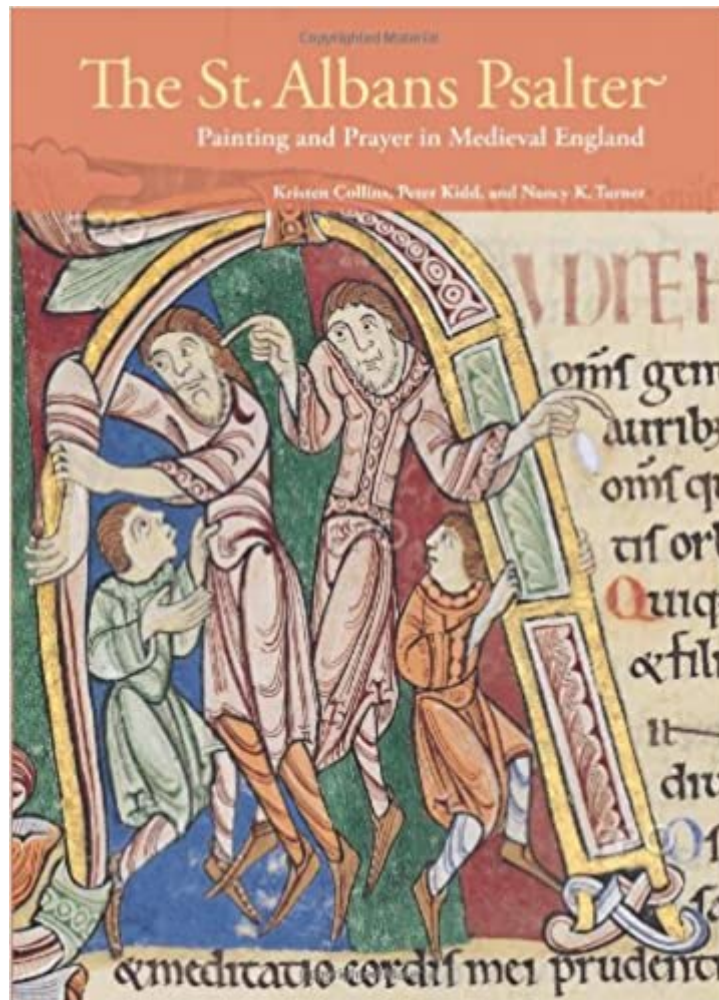 Copyrighted Material
The St. Albans Psalter
Painting and Prayer in Medieval England
Kristen Collins, Peter Kidd, and Nancy K. Turner
VDITE H
om̄s gen
auribꝫ
om̄s q
tis orb
Quiq
& fili
n
diu
&meditatio cordis mei prudenti